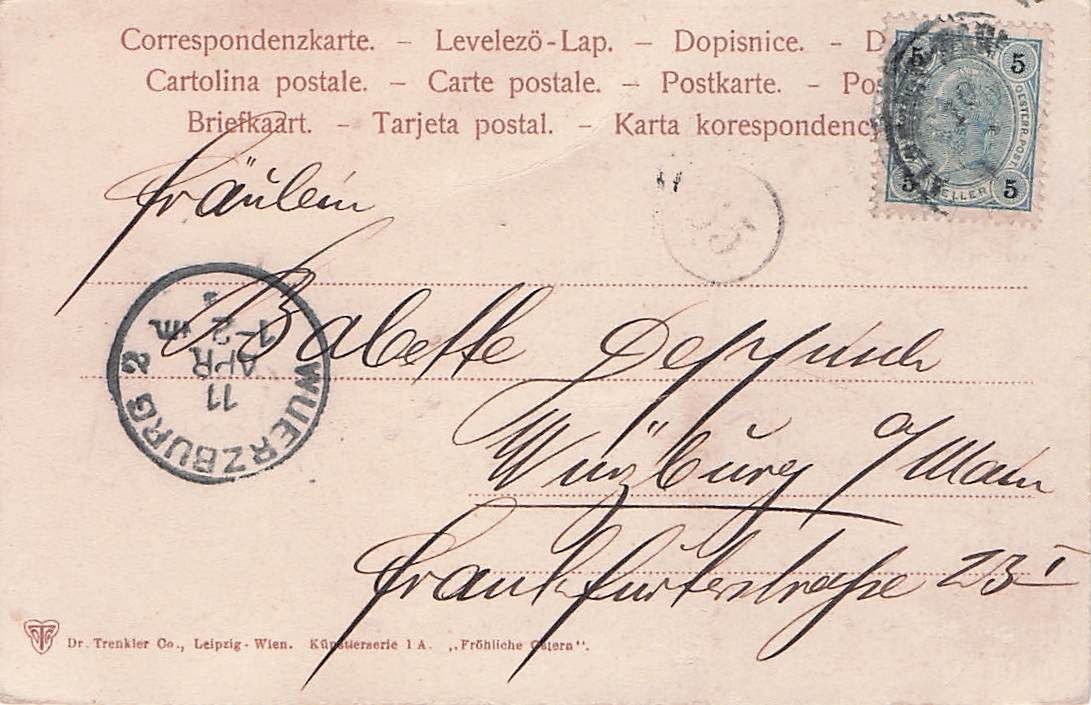 Correspondenzkarte. – Levelező-Lap. – Dopisnice. – D
Cartolina postale. – Carte postale. – Postkarte. – Pos
Briefkaart. – Tarjeta postal. – Karta korespondency
5 5
OESTERR. POST.
5 HELLER 5
35
Fräulein
Babette
Würzburg a/Main
Frankfurterstraße 23 I
WUERZBURG 2
11
APR
1-2
Dr. Trenkler Co., Leipzig - Wien. Künstlerserie 1 A. „Fröhliche Ostern“.